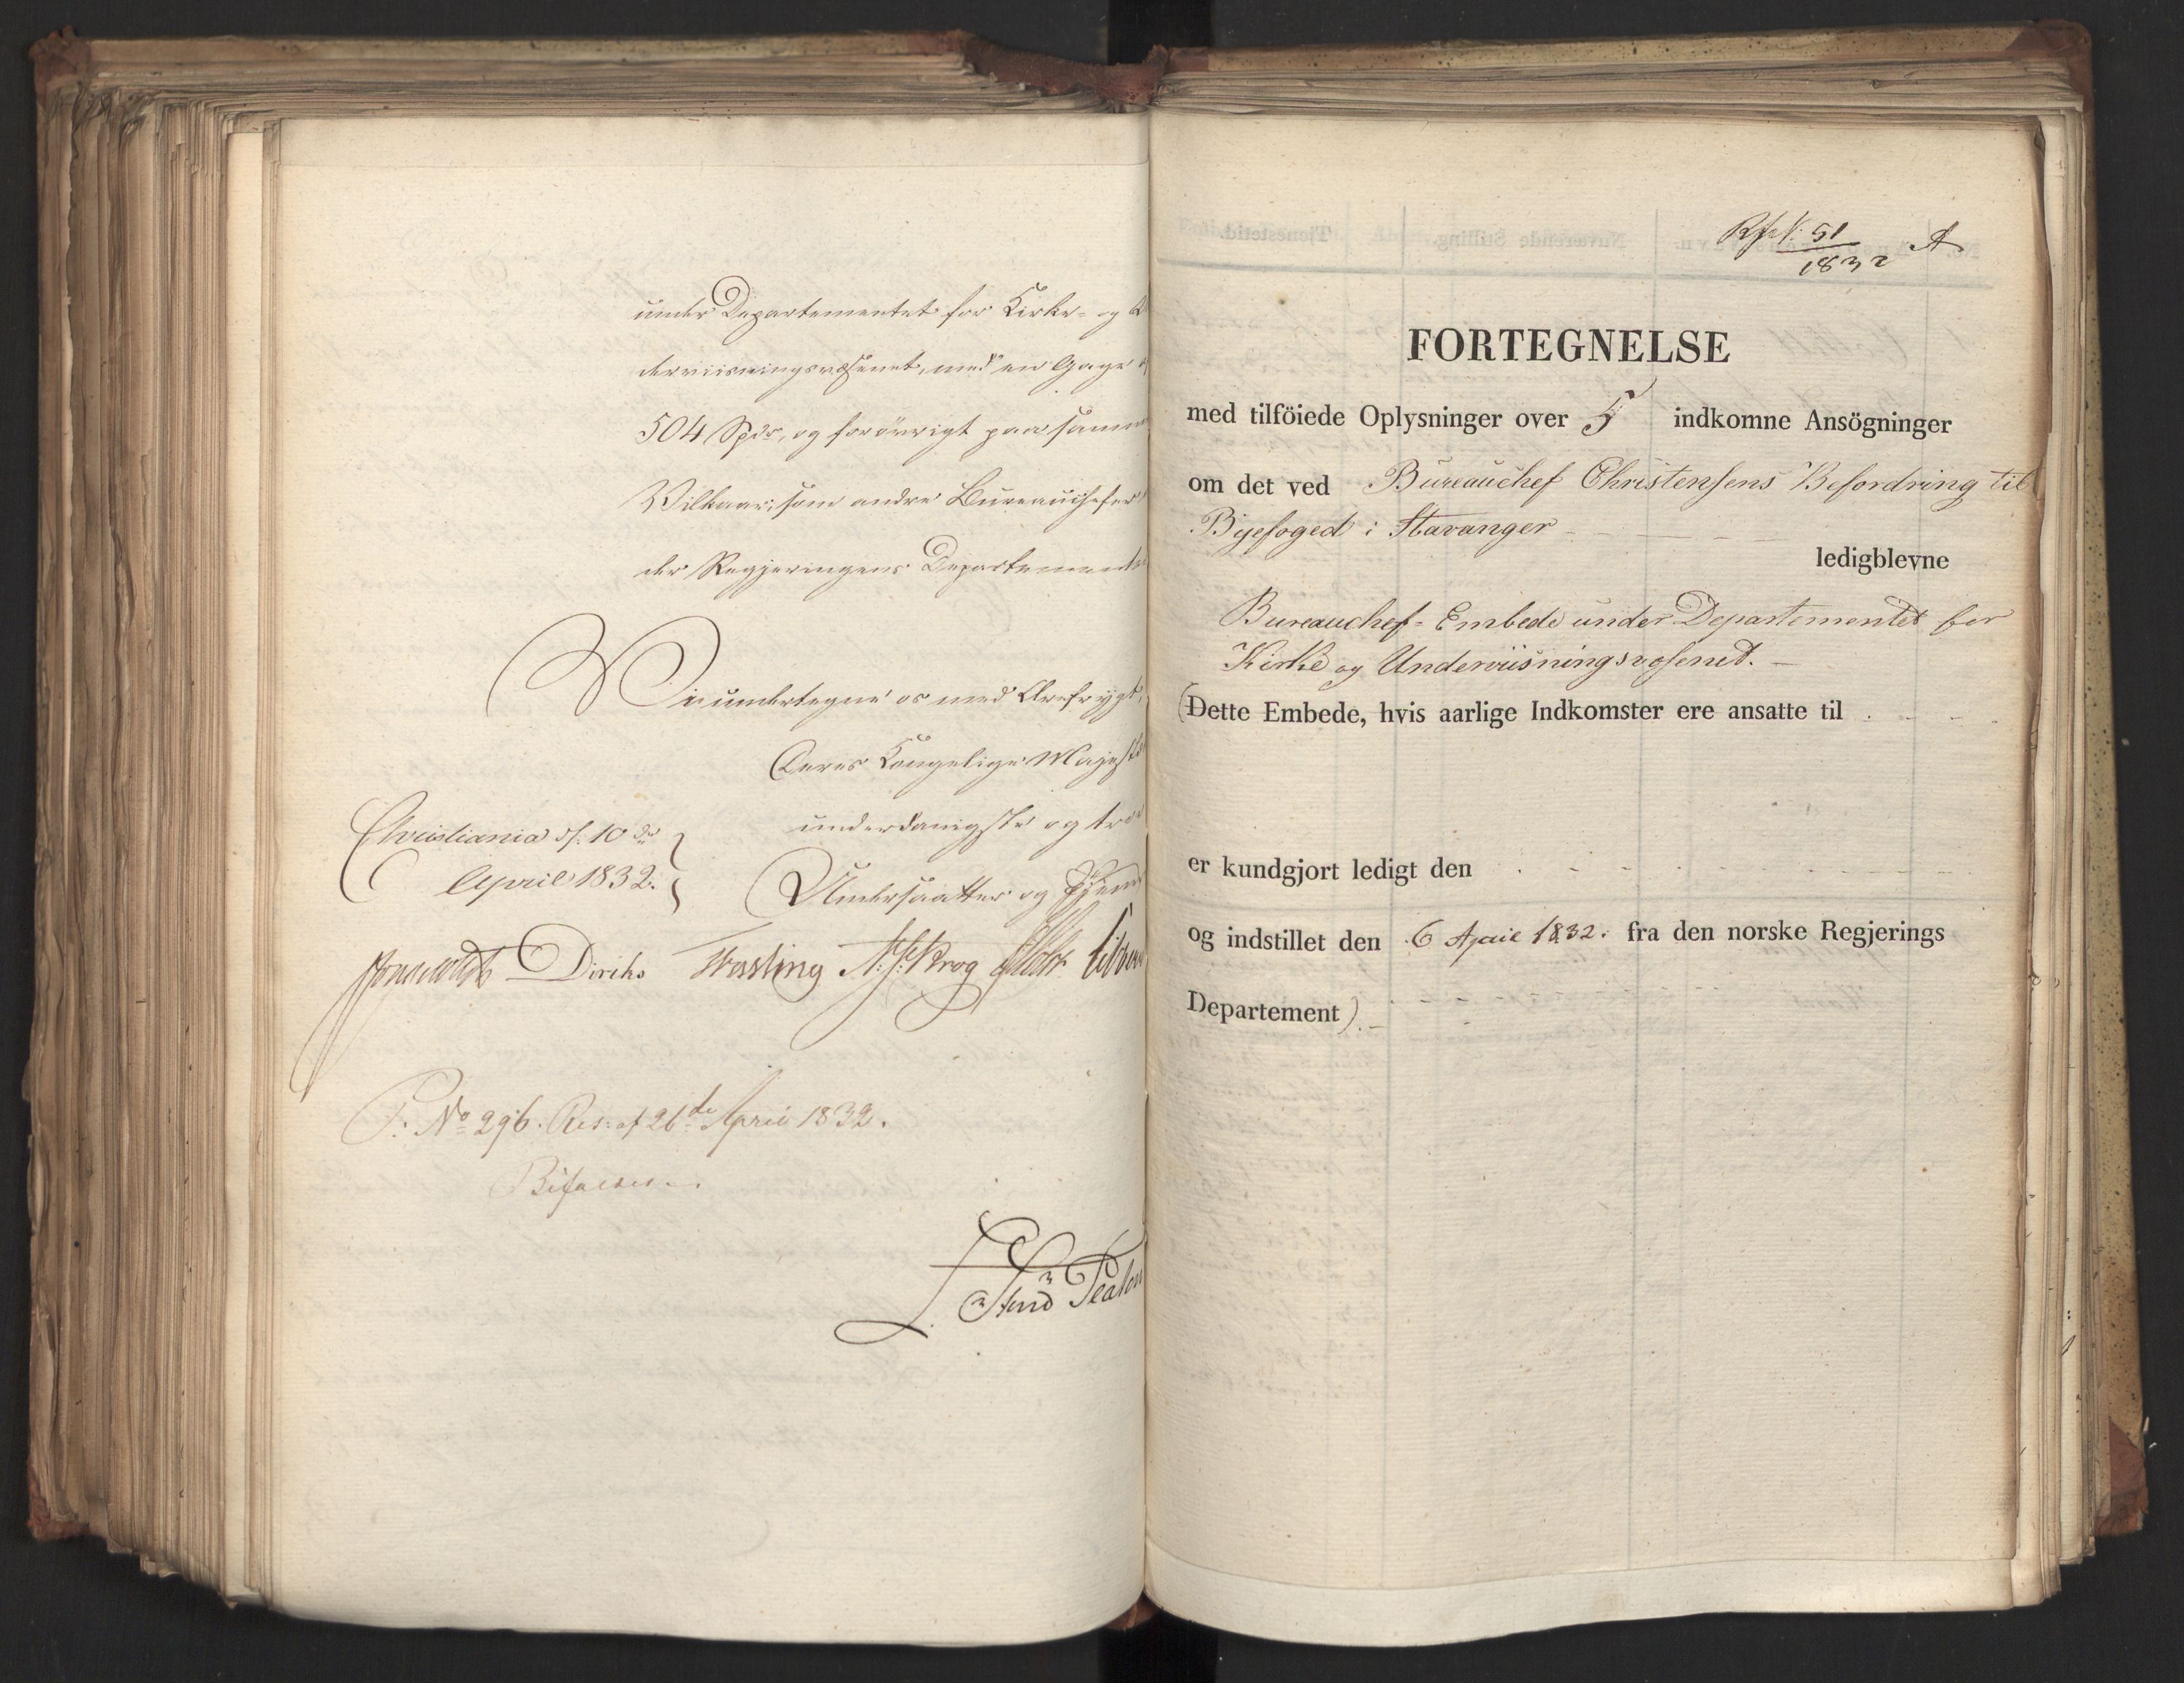 under Departementet for Kirke- og
derviisningsvæsenet, med en Gage
504 Spdr, og forövrigt paa samme
Vilkaar, som andre Bureauchefer
der Regjeringens Departementer
Vi undertegne os med Ærefrygt,
Deres Kongelige Majestæts
underdanigste og troe
Undersaatter og Tjenere
Christiania d: 10de
April 1832.
Diriks Treschow Krog
P: No 296. Res: af 26de April 1832.
Bifaldes.
51
1832 A
FORTEGNELSE
med tilföiede Oplysninger over 5 indkomne Ansögninger
om det ved Bureauchef Christensens Befordring til
Byefoged i Stavanger
ledigblevne
Bureauchef-Embede under Departementet for
Kirke og Underviisningsvæsenet.
(Dette Embede, hvis aarlige Indkomster ere ansatte til
er kundgjort ledigt den
og indstillet den 6 April 1832. fra den norske Regjerings
Departement).